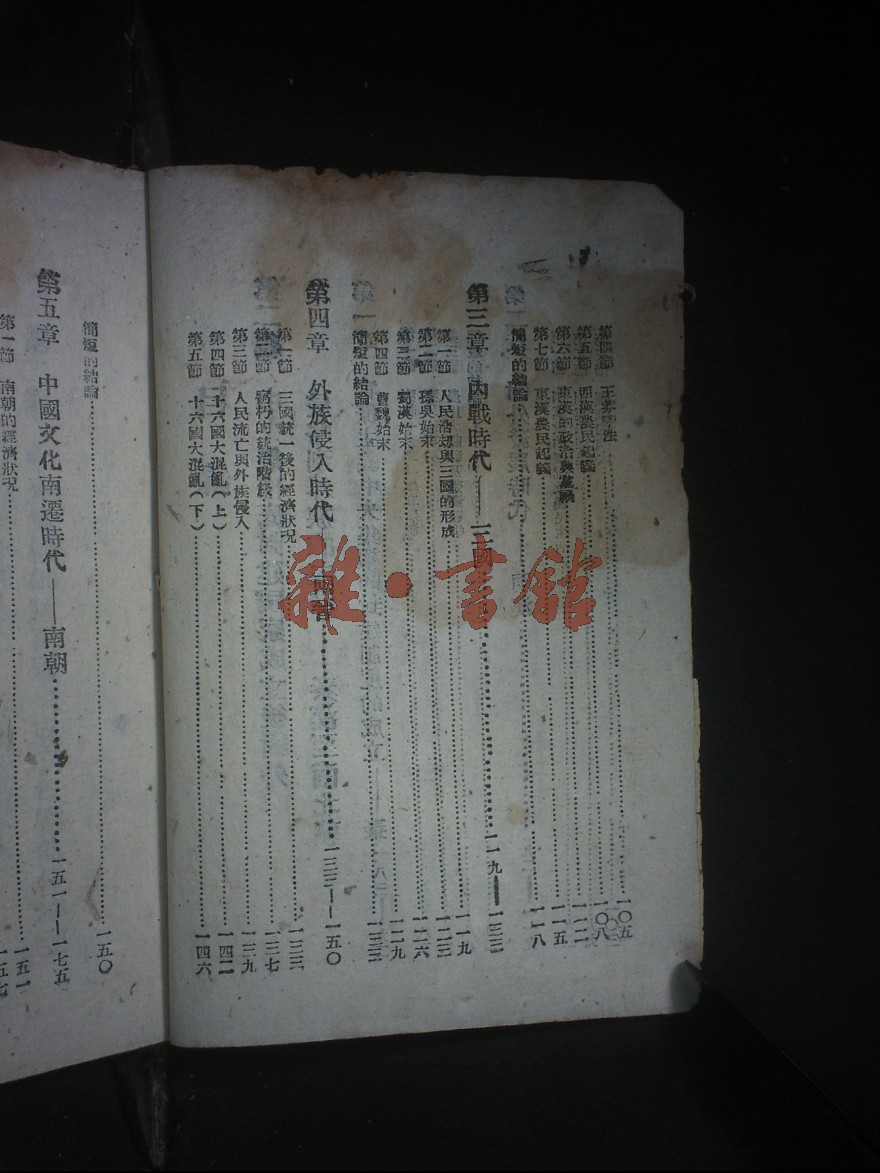 第四節 王莽變法……一〇五
第五節 西漢農民起義……一〇八
第六節 東漢的政治與黨禍……一一二
第七節 東漢農民起義……一一五
簡短的結論……一一八
第三章 內戰時代——三國……一一九——一三三
第一節 人民浩劫與三國的形成……一一九
第二節 孫吳始末……一二三
第三節 蜀漢始末……一二六
第四節 曹魏始末……一二九
簡短的結論……一三三
第四章 外族侵入時代——兩晉……一三三——一五〇
第一節 三國統一後的經濟狀況……一三三
第二節 腐朽的統治階級……一三七
第三節 人民流亡與外族侵入……一三九
第四節 十六國大混亂(上)……一四二
第五節 十六國大混亂(下)……一四六
簡短的結論……一五〇
第五章 中國文化南遷時代——南朝……一五一——一七五
第一節 南朝的經濟狀況……一五一
一五七
雜·書館